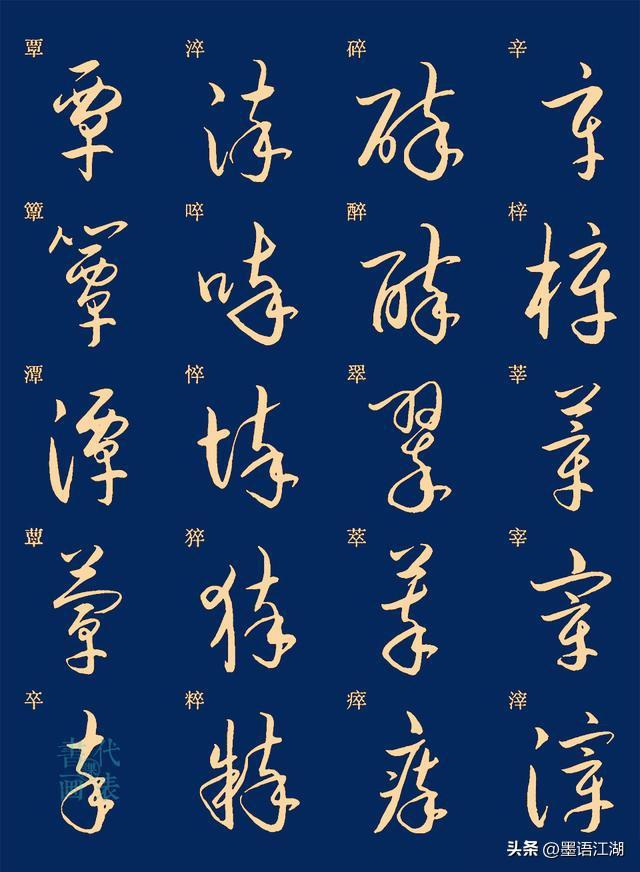 覃 淬 碎 辛
簟 啐 醉 梓
潭 悴 翠 莘
蕈 猝 萃 宰
卒 粹 瘁 滓
書代
画裱
头条 @墨语江湖